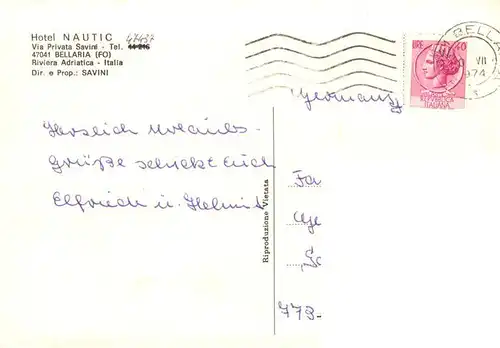 Hotel NAUTIC 47437
Via Privata Savini - Tel. 44-216
47041 BELLARIA (FO)
Riviera Adriatica - Italia
Dir. e Prop.: SAVINI
LIRE 40
REPUBBLICA
ITALIANA
BELLA
VII
974
Germany
Herzlich Urlaubs-
Grüße schickt Euch
Elfriede u. Helmut
Riproduzione Vietata
Fa
773-